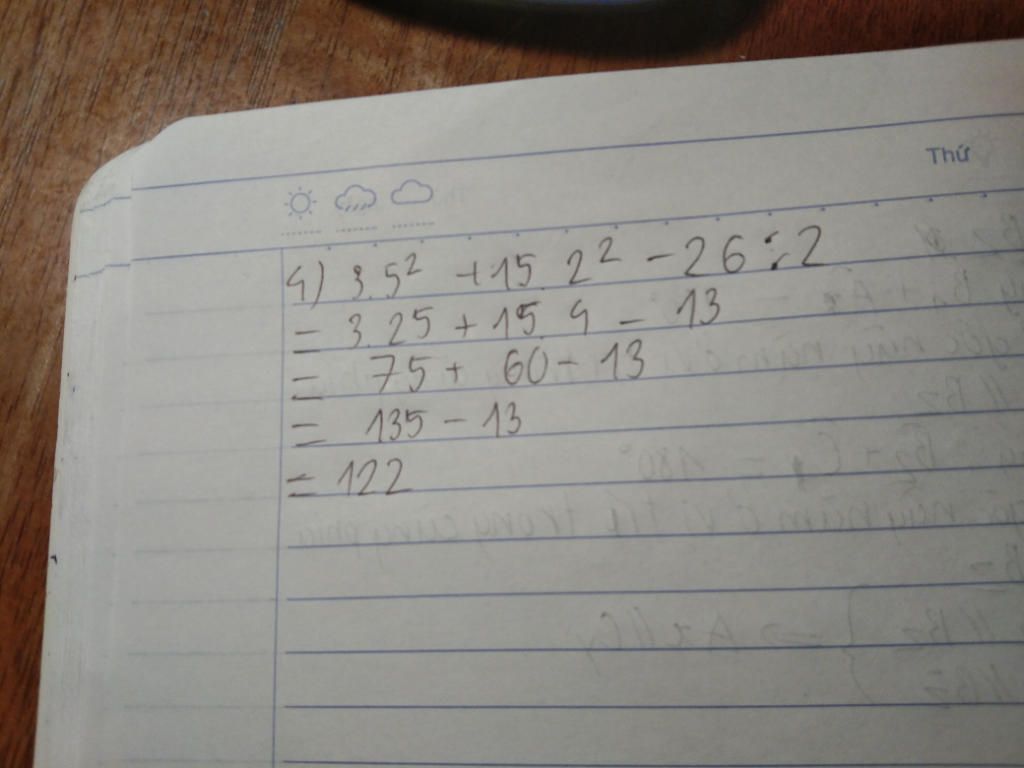 Thứ
4) 3.5² + 15.2² - 26 : 2
= 3.25 + 15.4 - 13
= 75 + 60 - 13
= 135 - 13
= 122